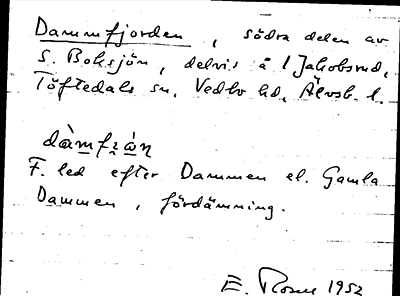 Dammfjorden, södra delen av
S. Boksjön, delvis å 1 Jakobsrud,
Töftedals sn, Vedbo hd, Älvsb. l.
dàmfi̯àn̥
F. led efter Dammen el. Gamla
Dammen, fördämning.
E. 1952